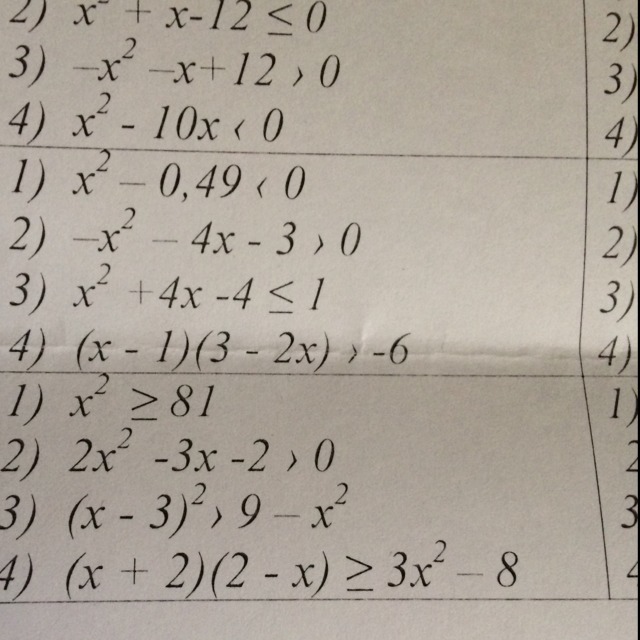 2) x² + x-12 ≤ 0
3) –x² –x+12 › 0
4) x² - 10x ‹ 0
1) x² – 0,49 ‹ 0
2) –x² – 4x - 3 › 0
3) x² +4x -4 ≤ 1
4) (x - 1)(3 - 2x) › -6
1) x² ≥ 81
2) 2x² -3x -2 › 0
3) (x - 3)² › 9 – x²
4) (x + 2)(2 - x) ≥ 3x² – 8
2)
3)
4)
1)
2)
3)
4)
1)
2
3